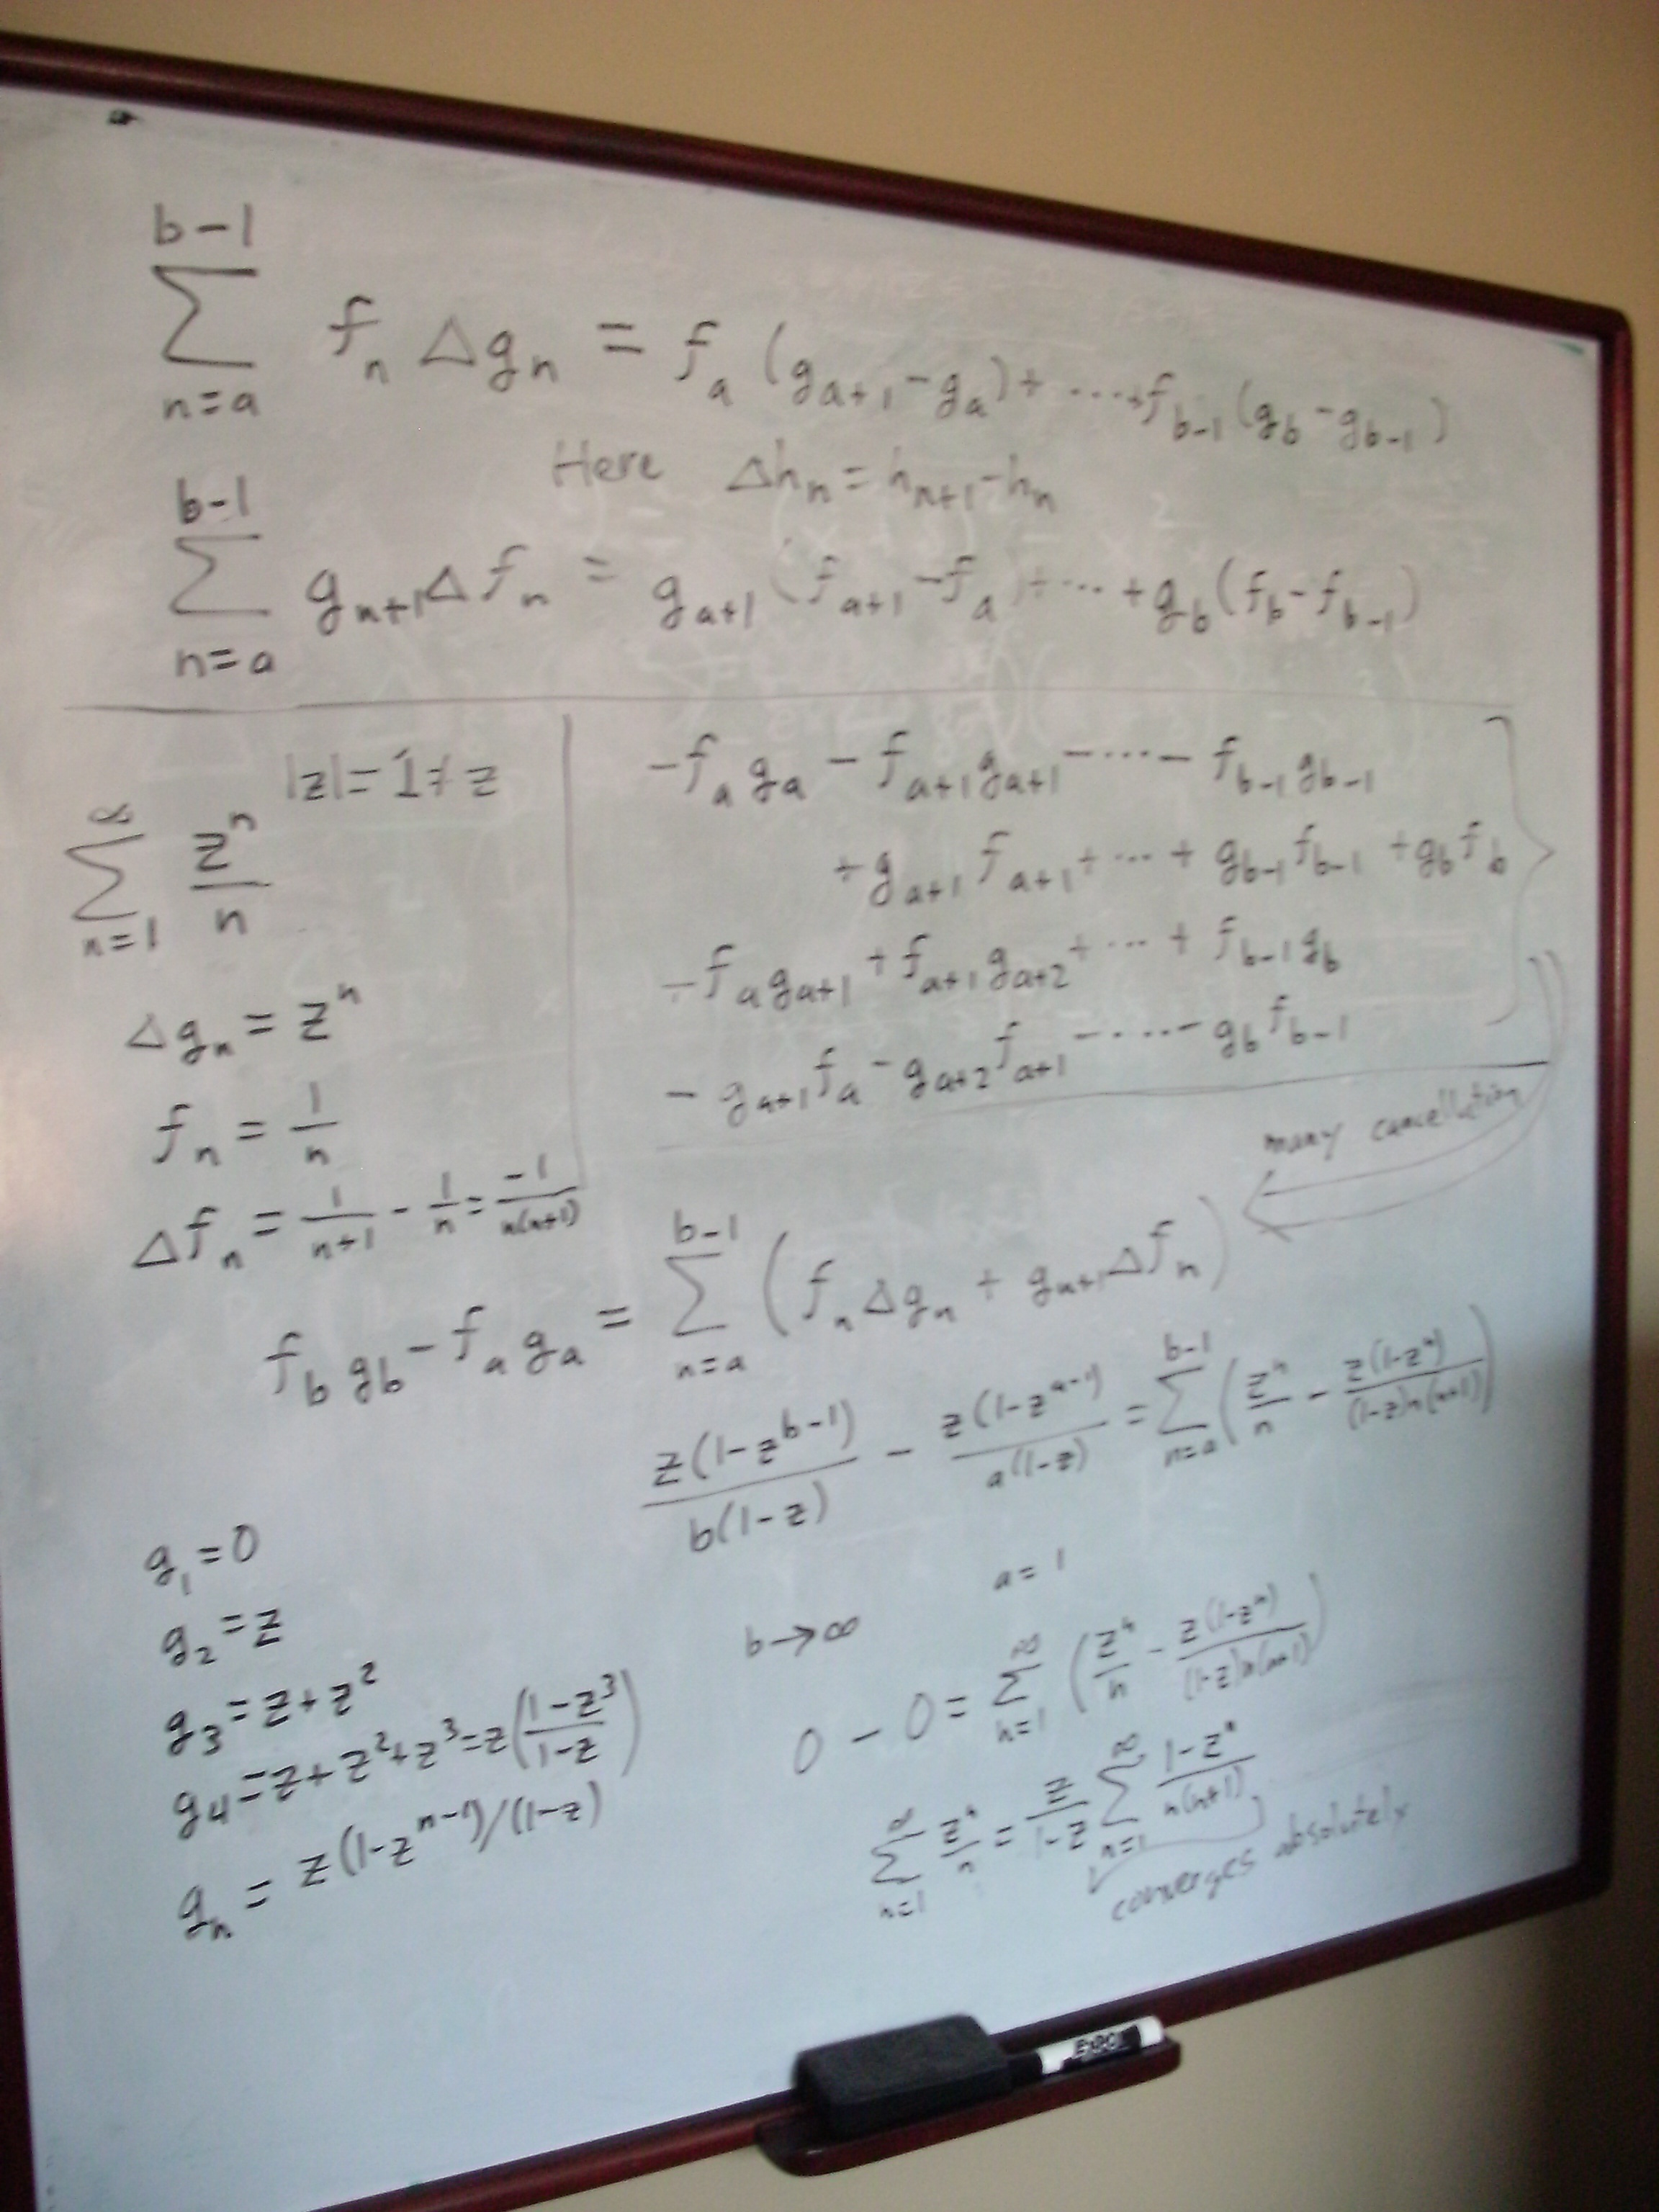 b-1
∑ f_n Δg_n = f_a (g_{a+1} - g_a) + ⋯ + f_{b-1} (g_b - g_{b-1})
n=a
Here Δh_n = h_{n+1} - h_n
b-1
∑ g_{n+1} Δf_n = g_{a+1} (f_{a+1} - f_a) + ⋯ + g_b (f_b - f_{b-1})
n=a
|z| = 1 ≠ z
∞
∑ z^n / n
n=1
Δg_n = z^n
f_n = 1/n
Δf_n = 1/(n+1) - 1/n = -1/(n(n+1))
-f_a g_a - f_{a+1} g_{a+1} - ⋯ - f_{b-1} g_{b-1}
+ g_{a+1} f_{a+1} + ⋯ + g_{b-1} f_{b-1} + g_b f_b
+ f_a g_{a+1} + f_{a+1} g_{a+2} + ⋯ + f_{b-1} g_b
- g_{a+1} f_a - g_{a+2} f_{a+1} - ⋯ - g_b f_{b-1}
many cancellation
b-1
f_b g_b - f_a g_a = ∑ (f_n Δg_n + g_{n+1} Δf_n)
n=a
b-1
z(1-z^{b-1}) / b(1-z) - z(1-z^{a-1}) / a(1-z) = ∑ (z^n / n - z(1-z^n) / (1-z)n(n+1))
n=a
g_1 = 0
g_2 = z
g_3 = z + z^2
g_4 = z + z^2 + z^3 = z((1-z^3) / (1-z))
g_n = z(1-z^{n-1})/(1-z)
a = 1
b → ∞
∞
0 - 0 = ∑ (z^n / n - z(1-z^n) / (1-z)n(n+1))
n=1
∞ ∞
∑ z^n / n = z / (1-z) ∑ (1-z^n) / n(n+1)
n=1 n=1
converges absolutely
EXPO